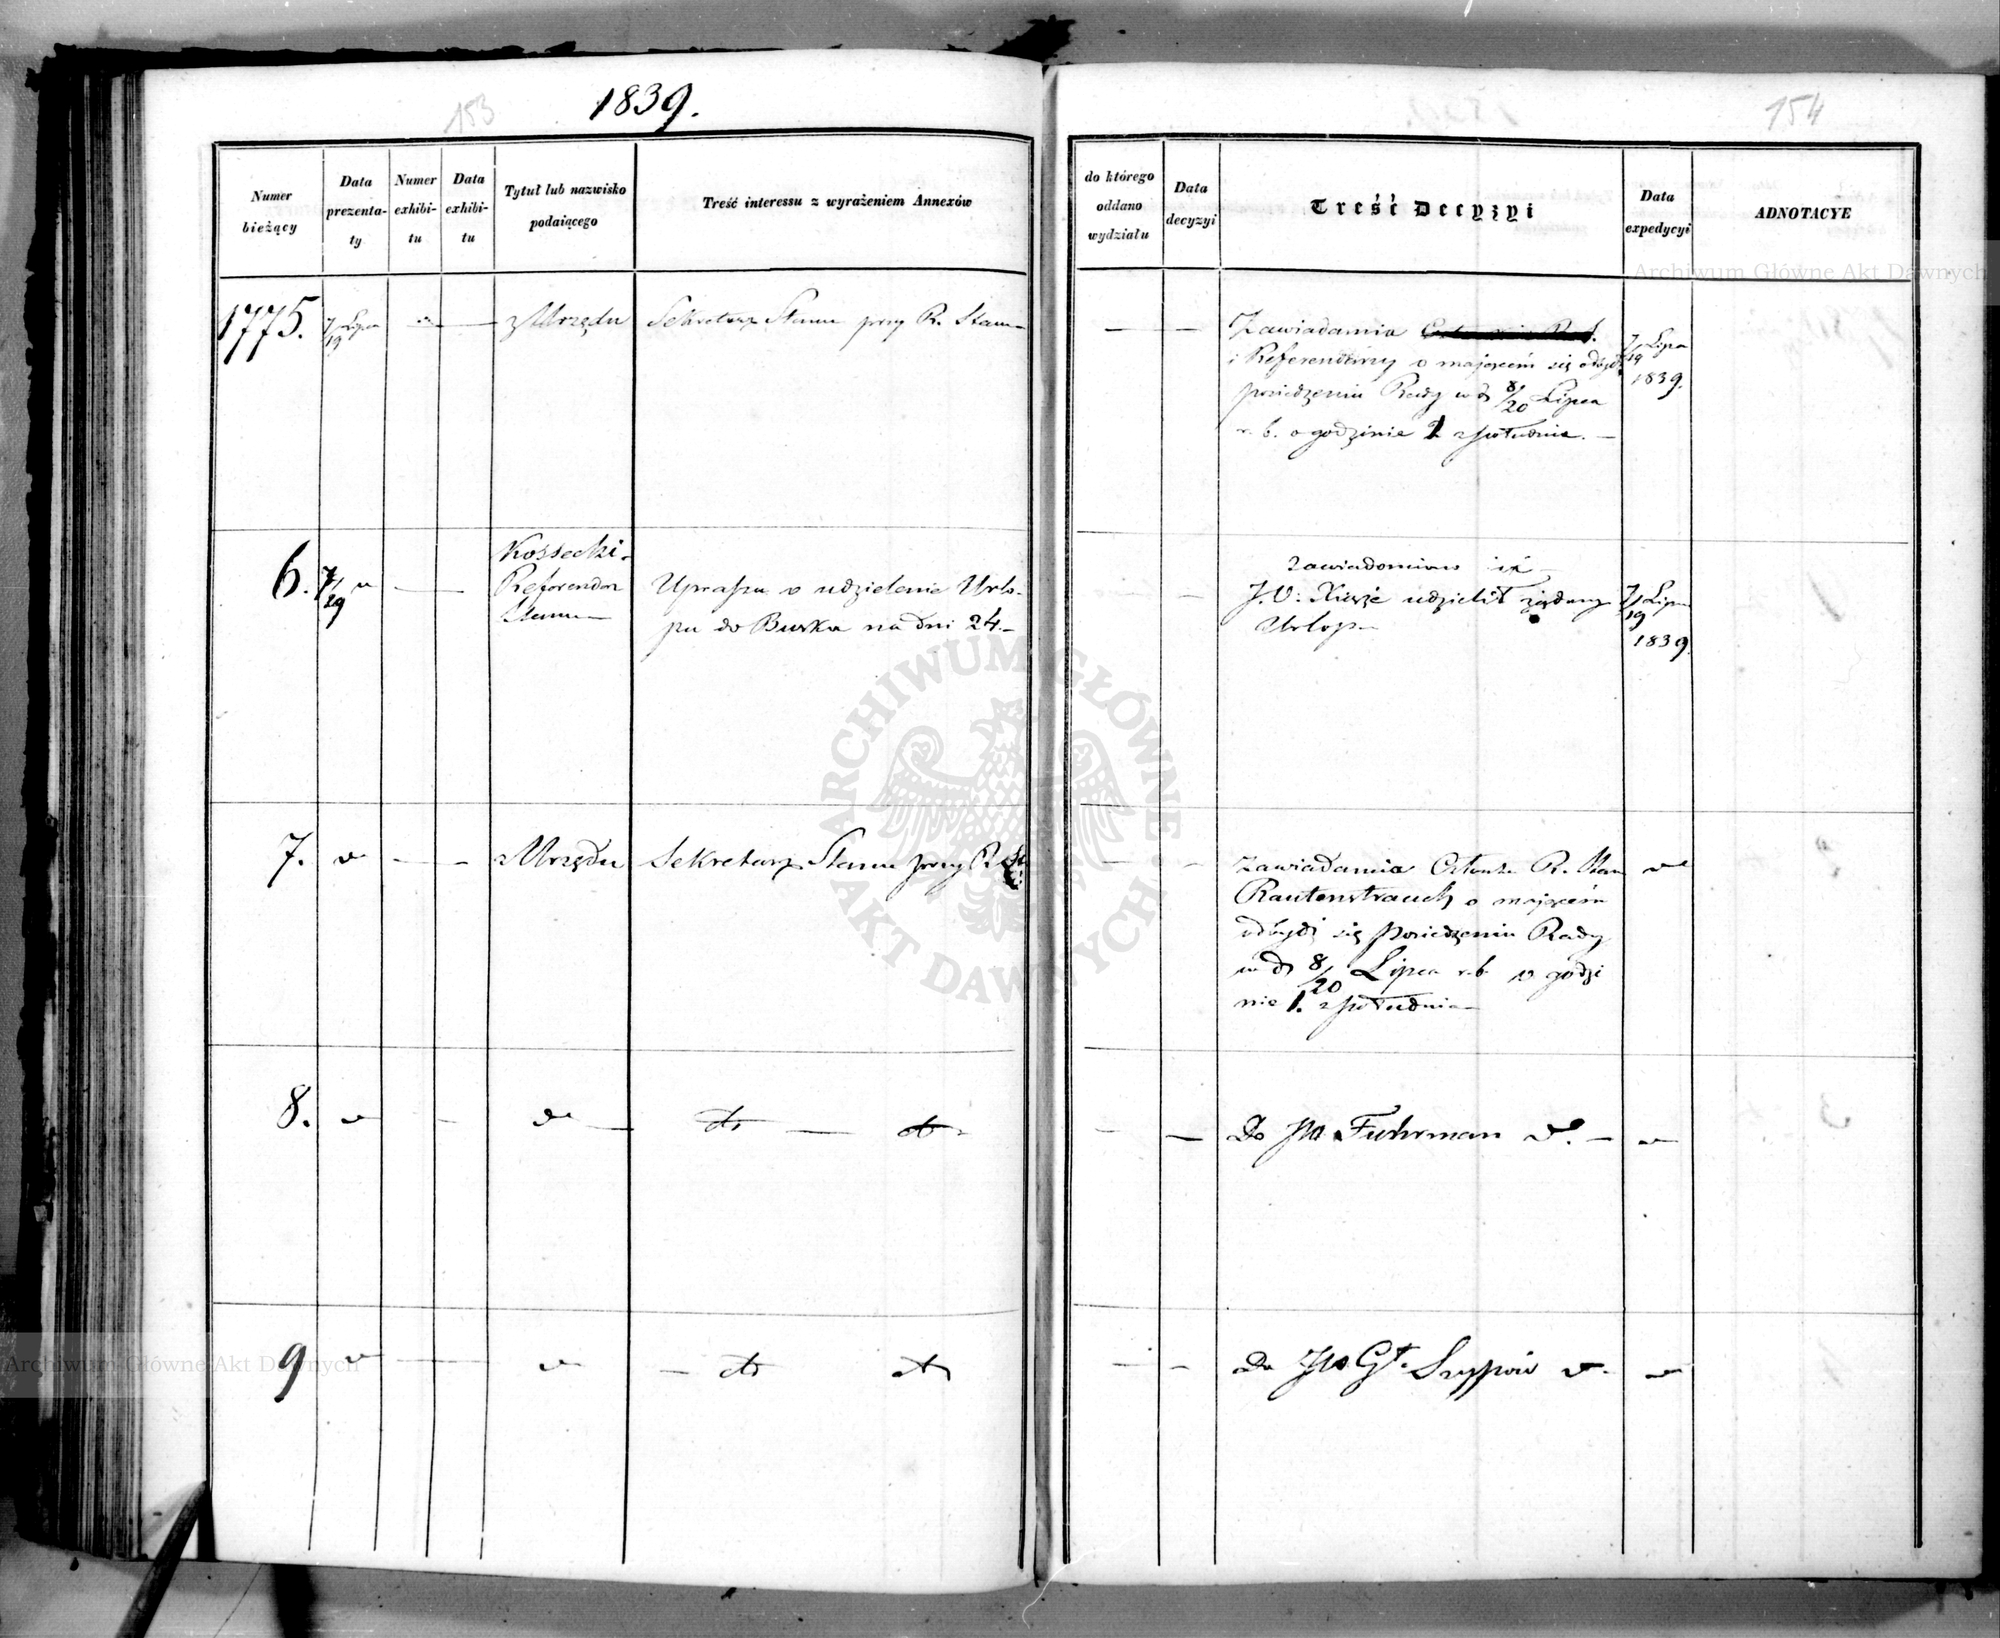 153
1839.
154
Numer
bieżący
Data
prezenta-
ty
Numer
exhibi-
tu
Data
exhibi-
tu
Tytuł lub nazwisko
podaiącego
Treść interessu z wyrażeniem Annexów
do którego
oddano
wydziału
Data
decyzyi
Treść Decyzyi
Data
expedycyi
ADNOTACYE
1775.
7/19 Lipca
z Urzędu
Sekretarz Stanu przy R. Stanu
Zawiadamia
i Referendarzy o mającém się odbydź
posiedzeniu Rady w d 8/20 Lipca
r. b. o godzinie 1 z południa. —
7/19 Lipca
1839.
6.
7/19
Kossecki
Referendarz
Stanu
Uprasza o udzielenie Urlo-
pu do Buska na dni 24.—
Zawiadomiono iż
J. O. Xiąże udzielił żądany
Urlop
7/19 Lipca
1839.
7.
z Urzędu
Sekretarz Stanu przy R. St
zawiadamia Członka R. Stanu
Rautenstrauch o mającém
odbydź się Posiedzeniu Rady
w d 8/20 Lipca r.b. o godzi
nie 1. z południa
8.
dto — dto
Do Jla Fuhrman
9
— dto dto
Do Gł. Szypow
ARCHIWUM GŁÓWNE AKT DAWNYCH
Archiwum Główne Akt Dawnych
Archiwum Główne Akt Dawnych